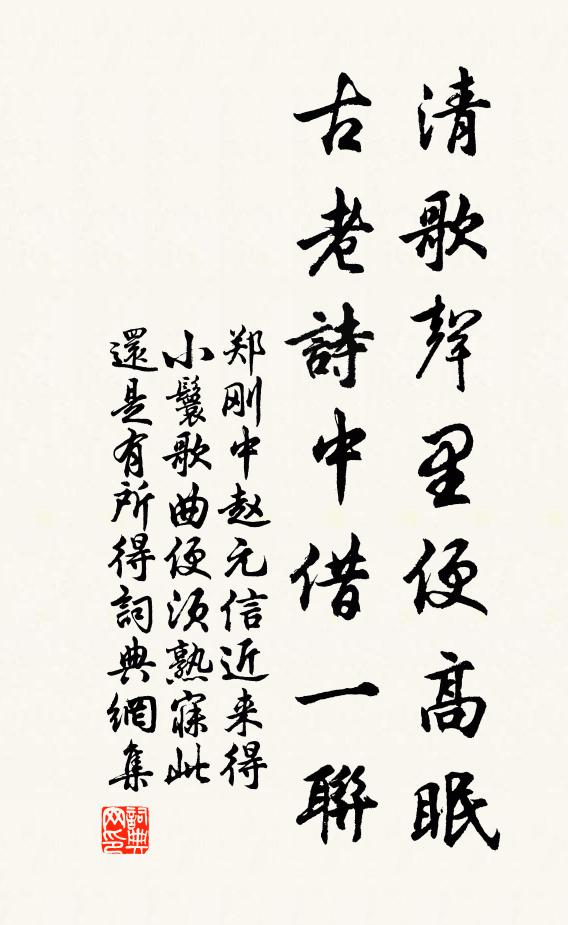 清歌聲里便高眠
古老詩中借一聯
郑刚中赵元信近来得
小鬟歌曲便须熟寐此
還是有所得詞典網集
詞典网印